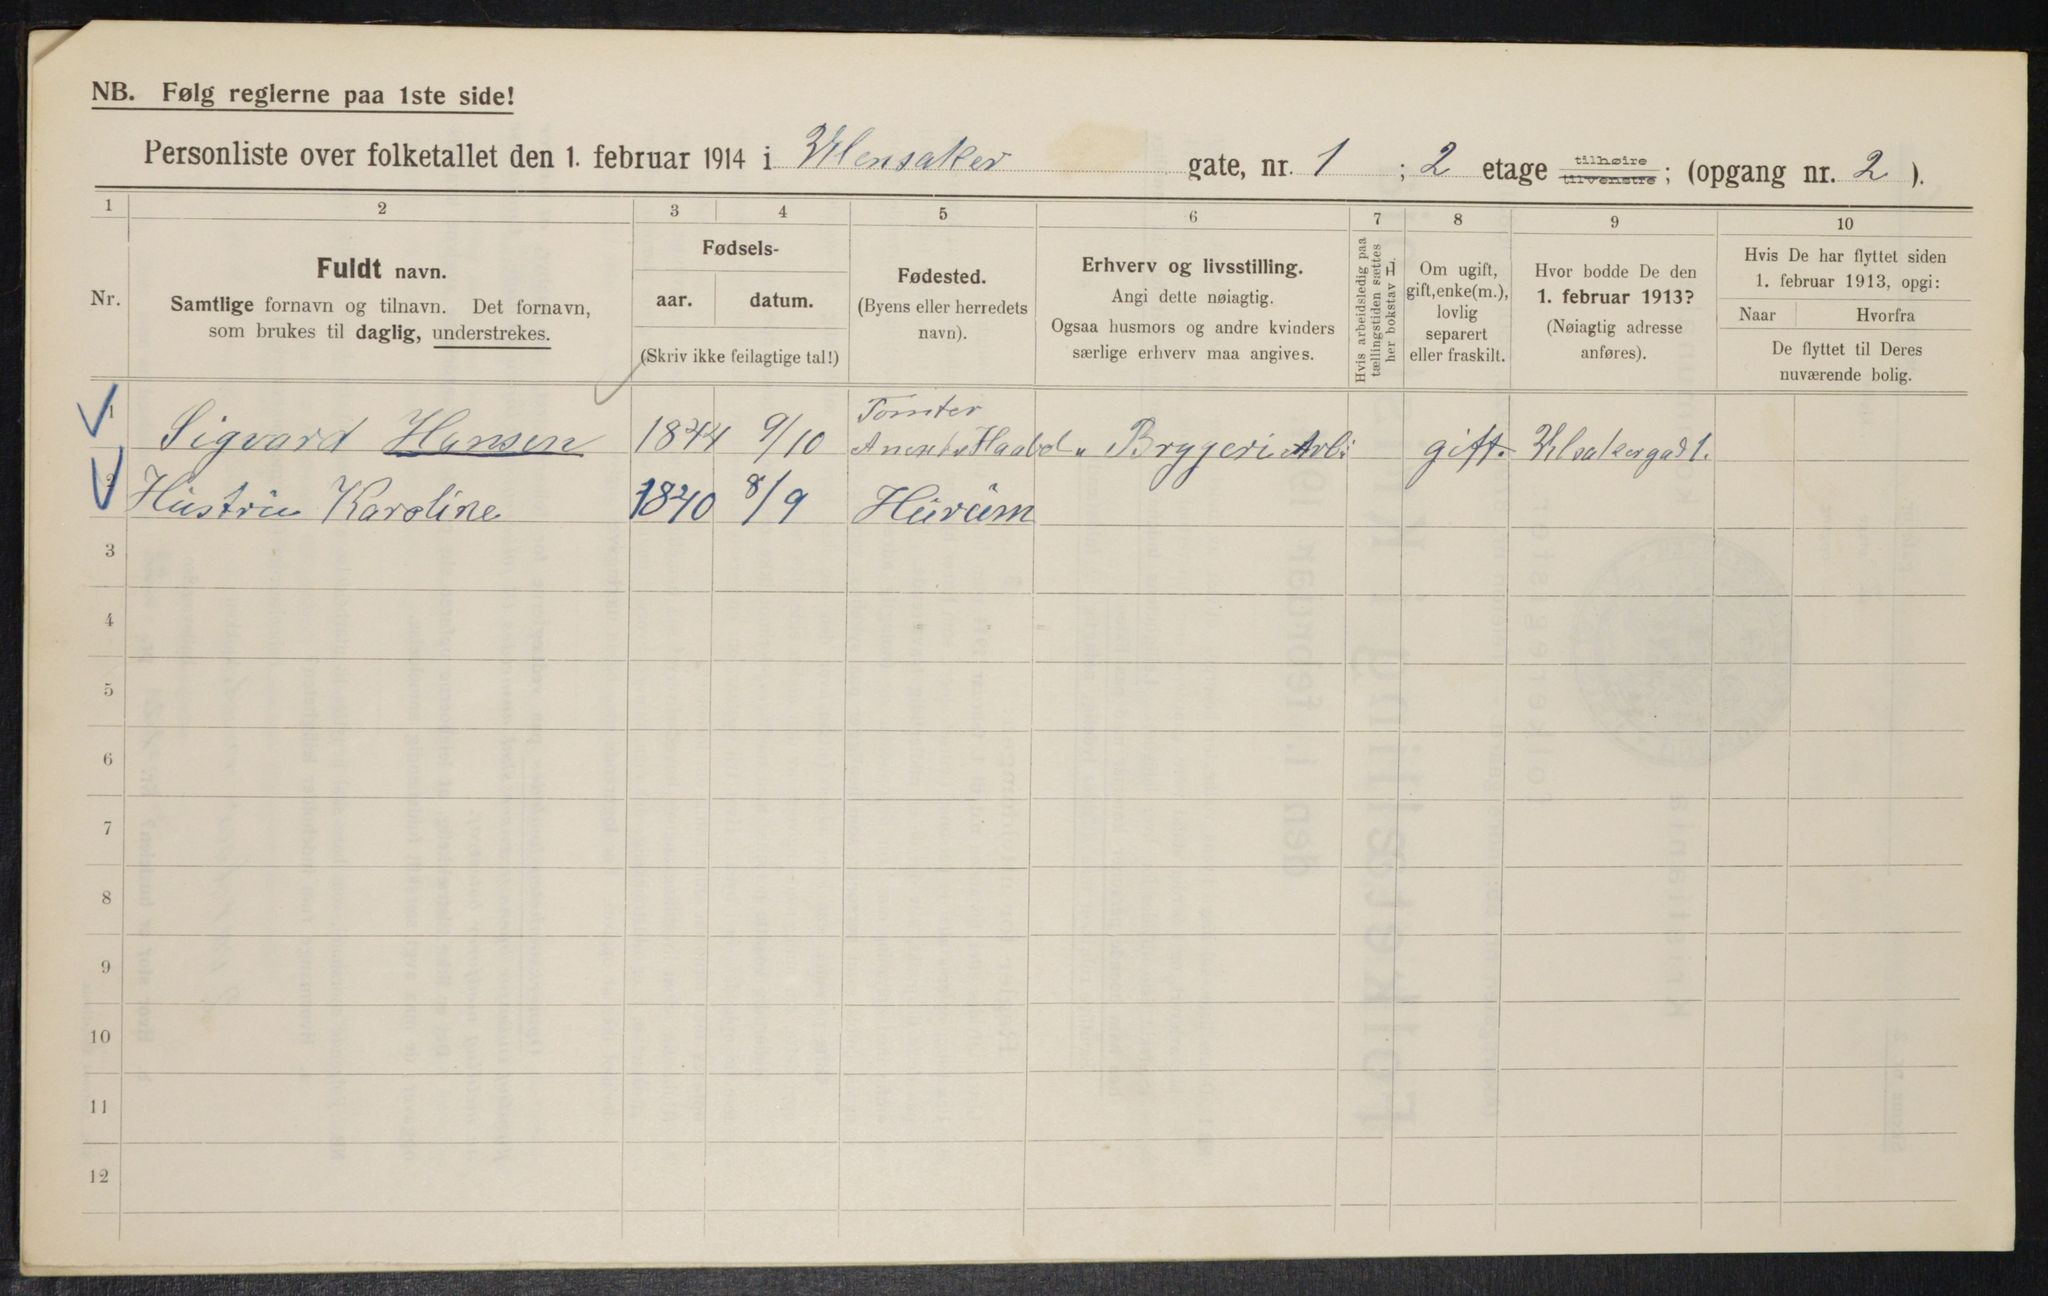 NB. Følg reglerne paa 1ste side!
Personliste over folketallet den 1. februar 1914 i Ulensaker gate, nr. 1 ; 2 etage tilhøire tilvenstre ; (opgang nr. 2 ).
1 2 3 4 5 6 7 8 9 10
Nr.
Fuldt navn.
Samtlige fornavn og tilnavn. Det fornavn,
som brukes til daglig, understrekes.
Fødsels-
aar. datum.
(Skriv ikke feilagtige tal!)
Fødested.
(Byens eller herredets
navn).
Erhverv og livsstilling.
Angi dette nøiagtig.
Ogsaa husmors og andre kvinders
særlige erhverv maa angives.
Hvis arbeidsledig paa
tællingstiden sættes
her bokstav L.
Om ugift,
gift, enke(m.),
lovlig
separert
eller fraskilt.
Hvor bodde De den
1. februar 1913?
(Nøiagtig adresse
anføres).
Hvis De har flyttet siden
1. februar 1913, opgi:
Naar Hvorfra
De flyttet til Deres
nuværende bolig.
1 Sigvard Hansen 1844 9/10 Tomter Bryggeri Arb: gift.
2 Hustru Karoline 1840 8/9 Hurum
3
4
5
6
7
8
9
10
11
12